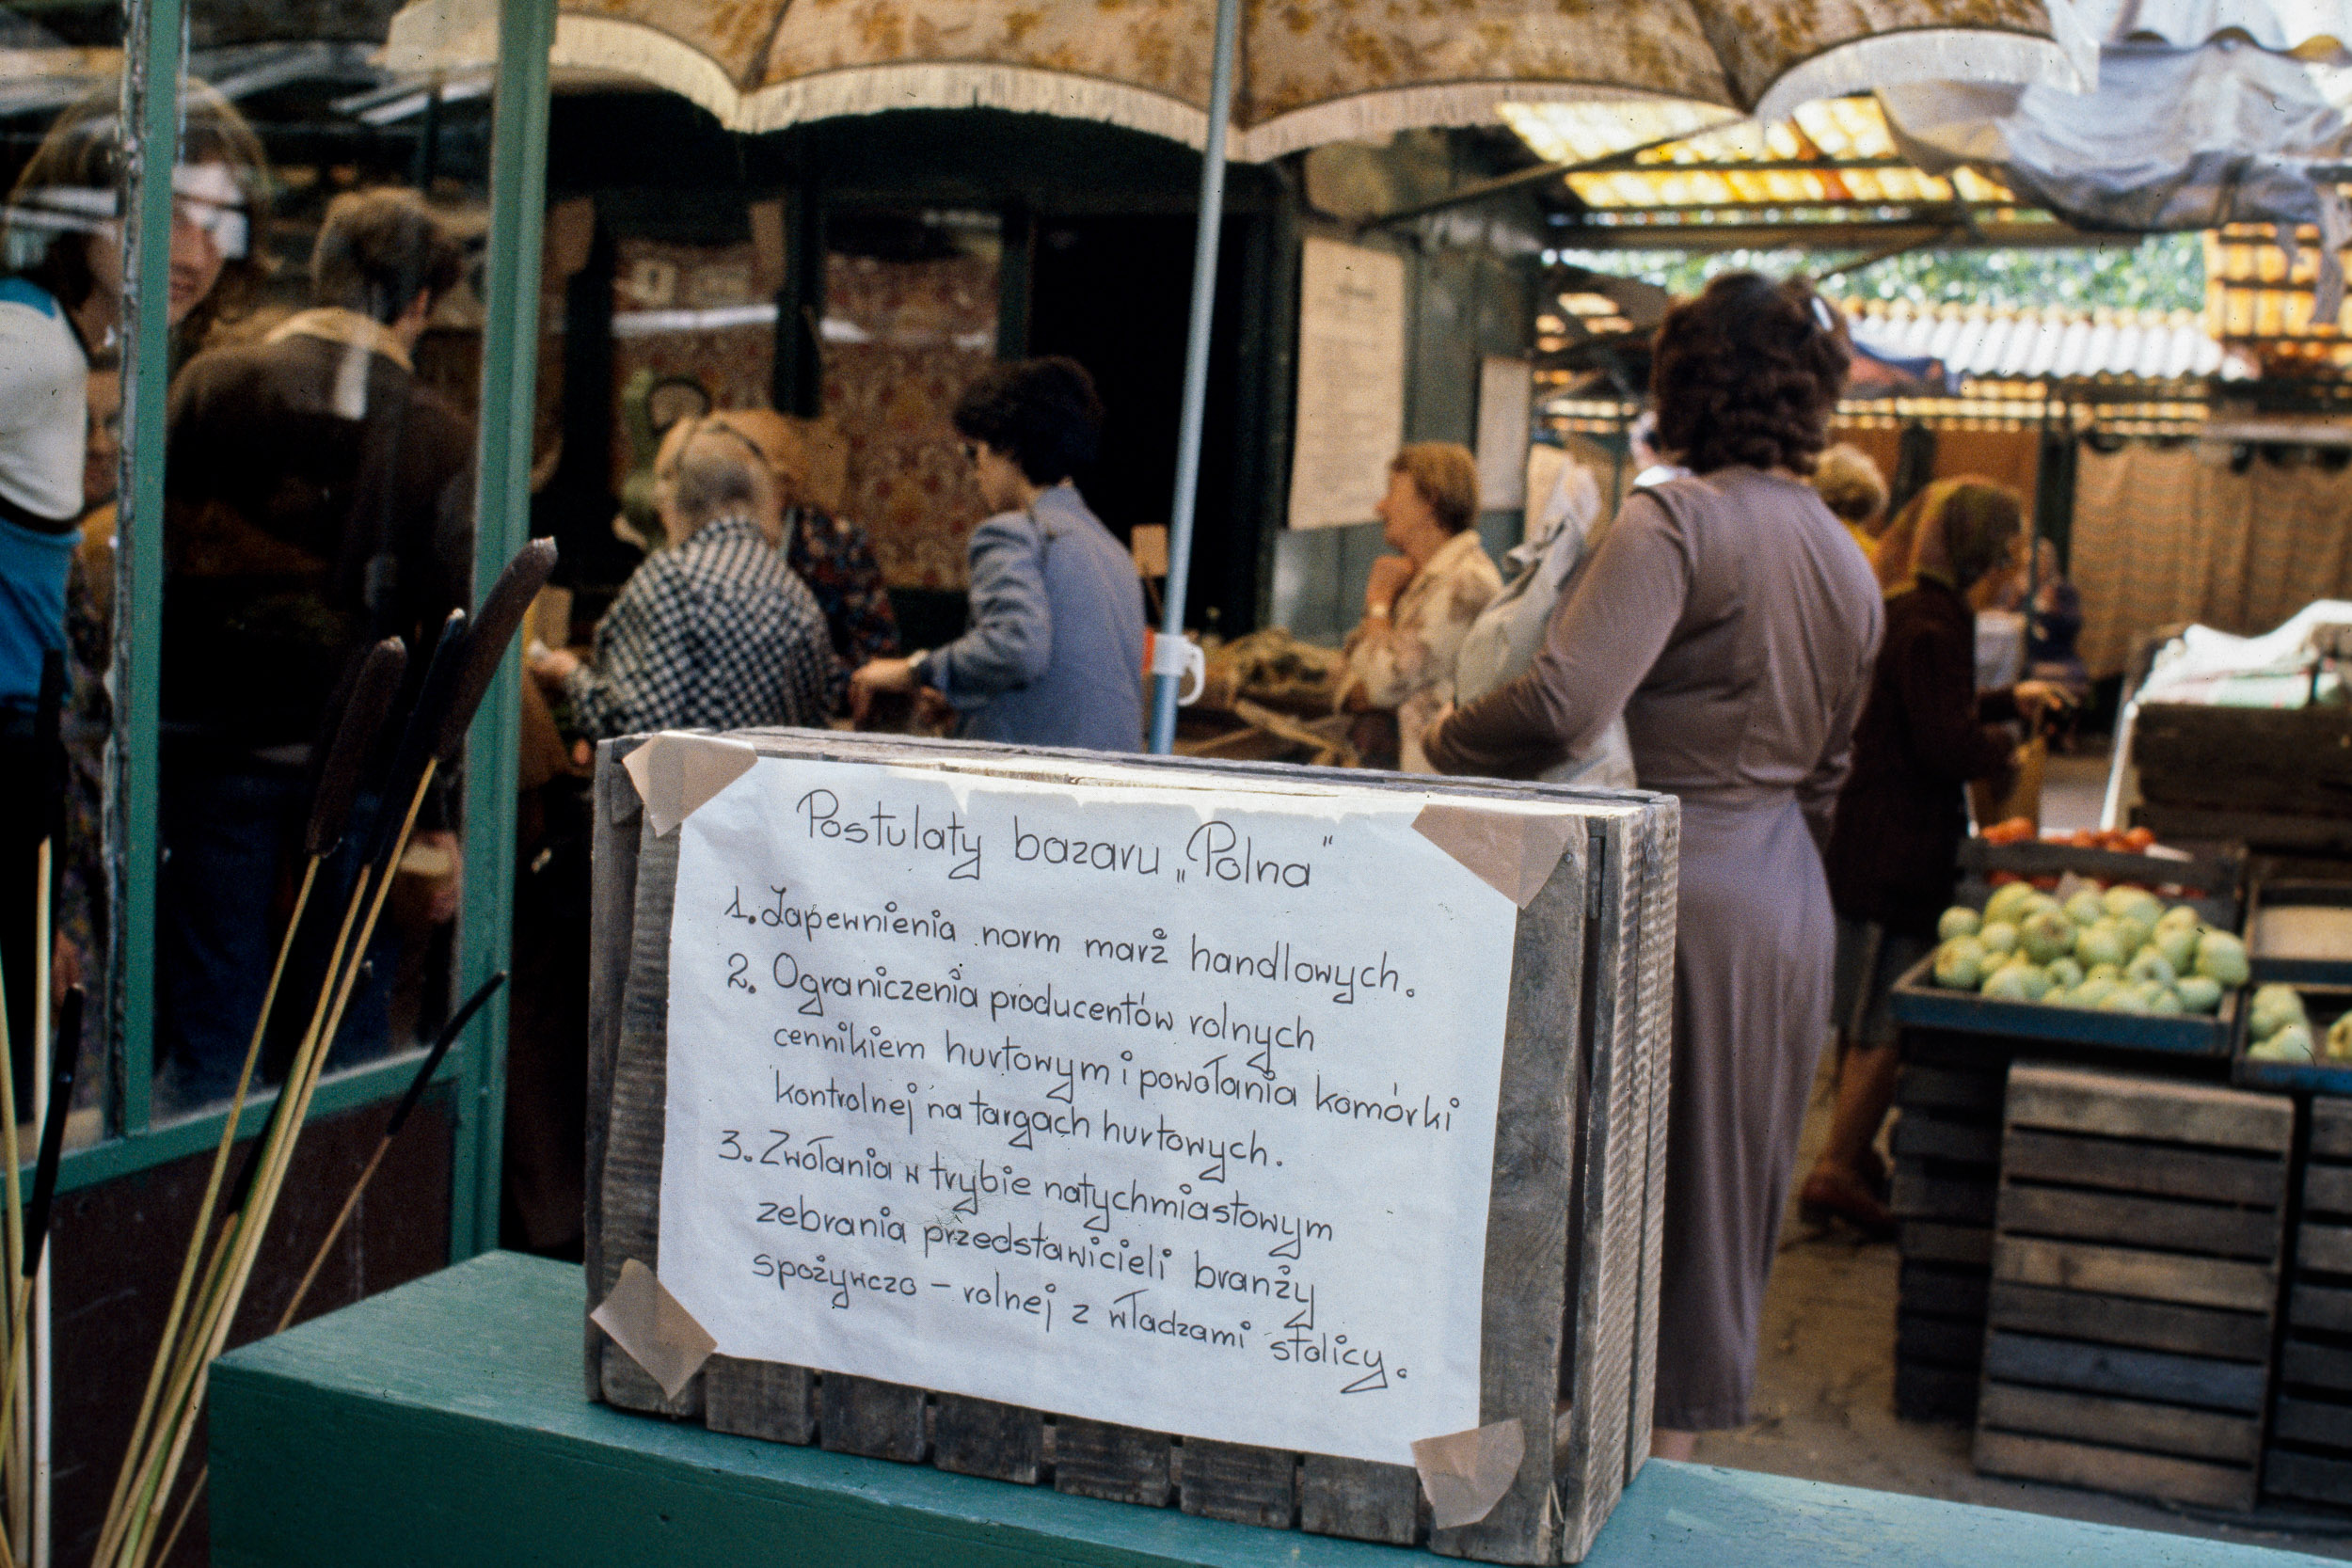 Postulaty bazaru „Polna"
1. Zapewnienia norm marż handlowych.
2. Ograniczenia producentów rolnych
cennikiem hurtowym i powołania komórki
kontrolnej na targach hurtowych.
3. Zwołania w trybie natychmiastowym
zebrania przedstawicieli branży
spożywczo - rolnej z władzami stolicy.